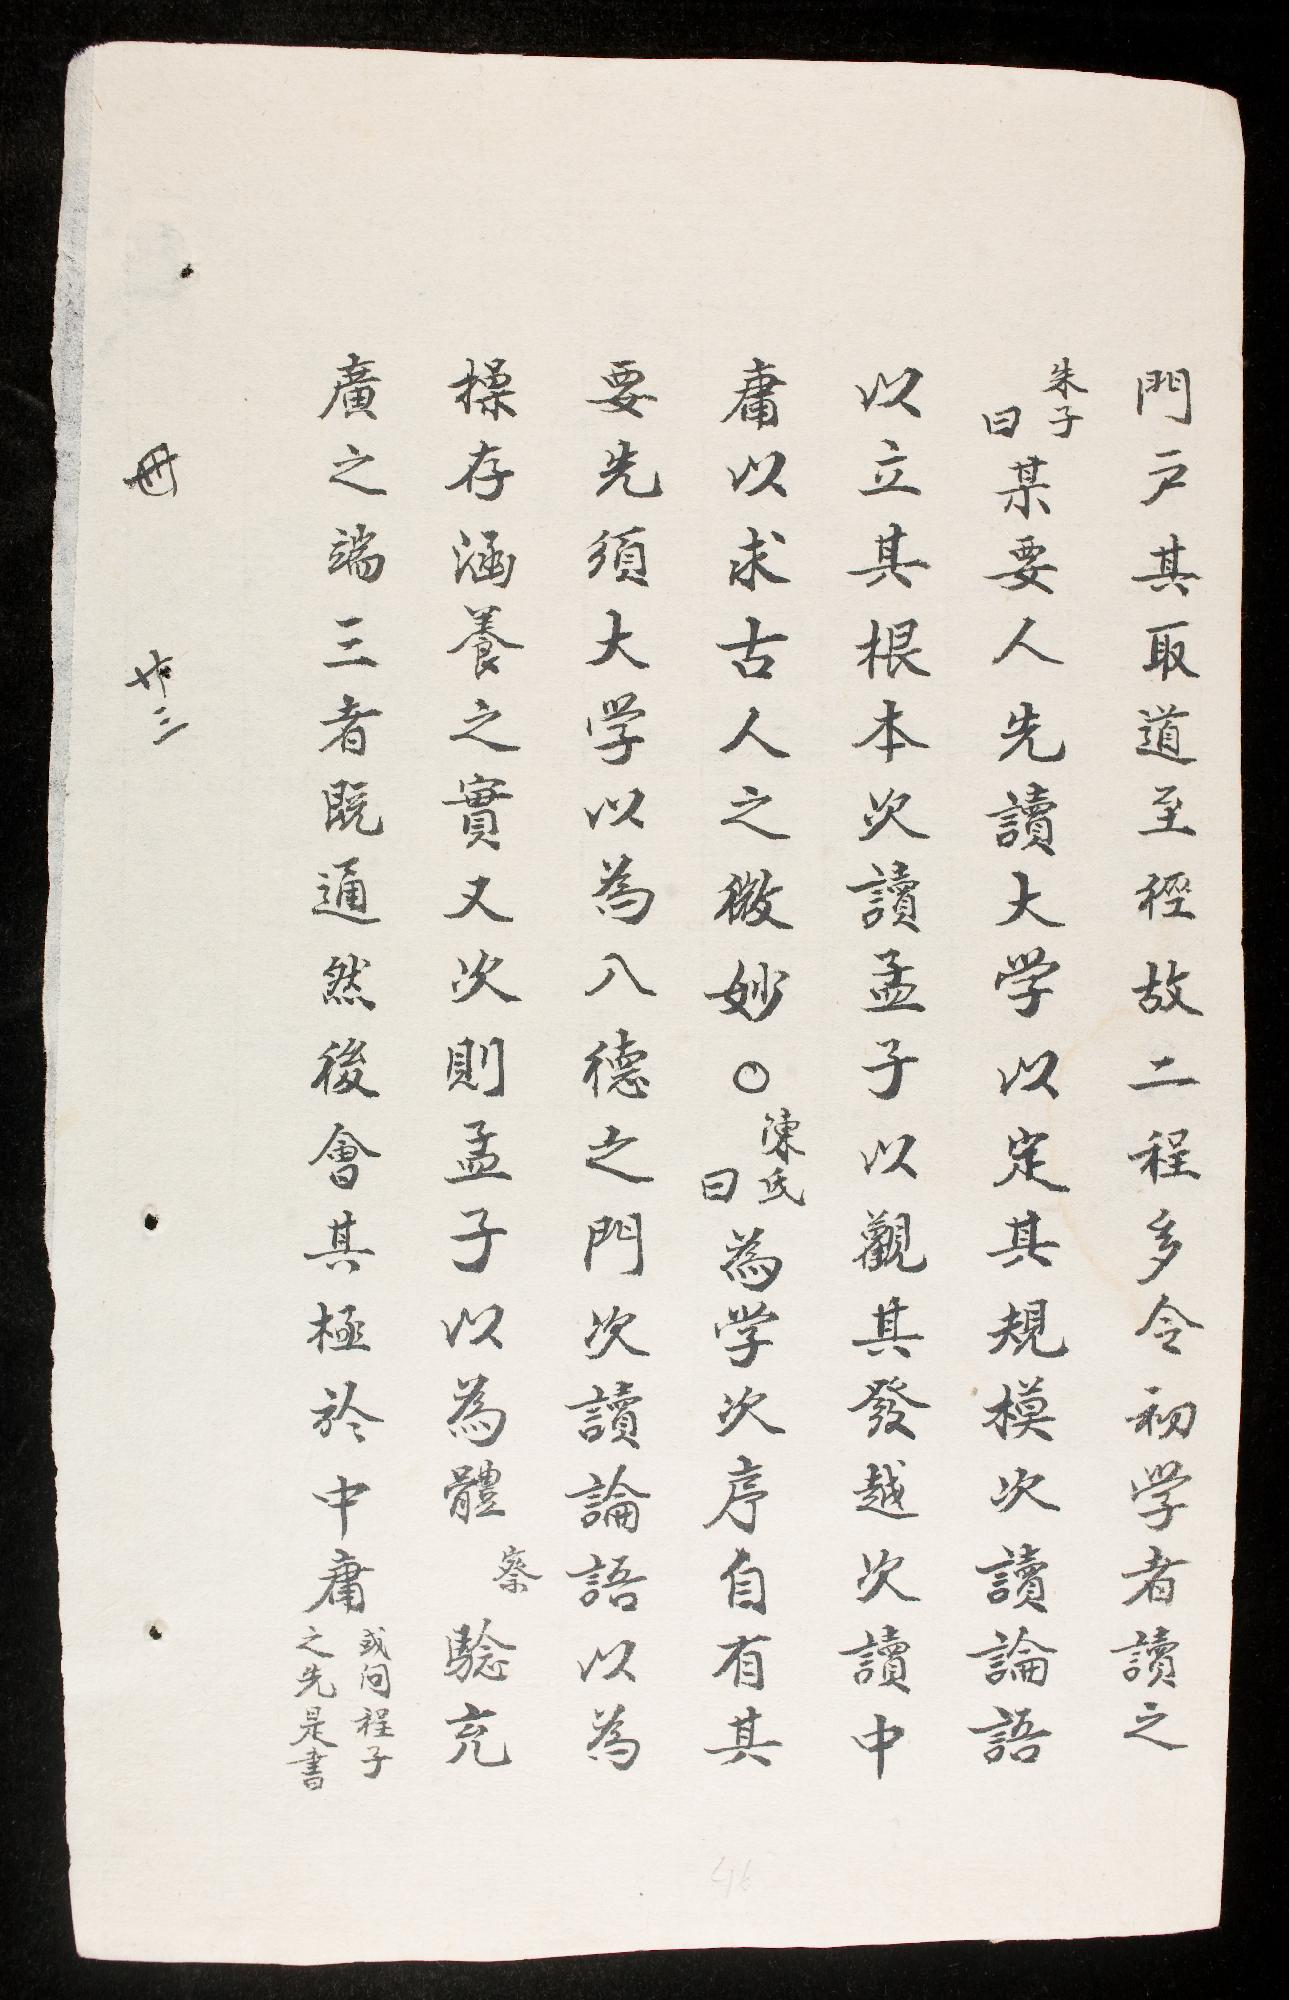 門戸其取道至徑故二程多令初学者讀之
朱子曰某要人先讀大学以定其規模次讀論語
以立其根本次讀孟子以觀其發越次讀中
庸以求古人之微妙○陳氏曰為学次序自有其
要先須大学以為入德之門次讀論語以為
操存涵養之實又次則孟子以為體察驗充
廣之端三者既通然後會其極於中庸或问程子之先是書
卌
卅三